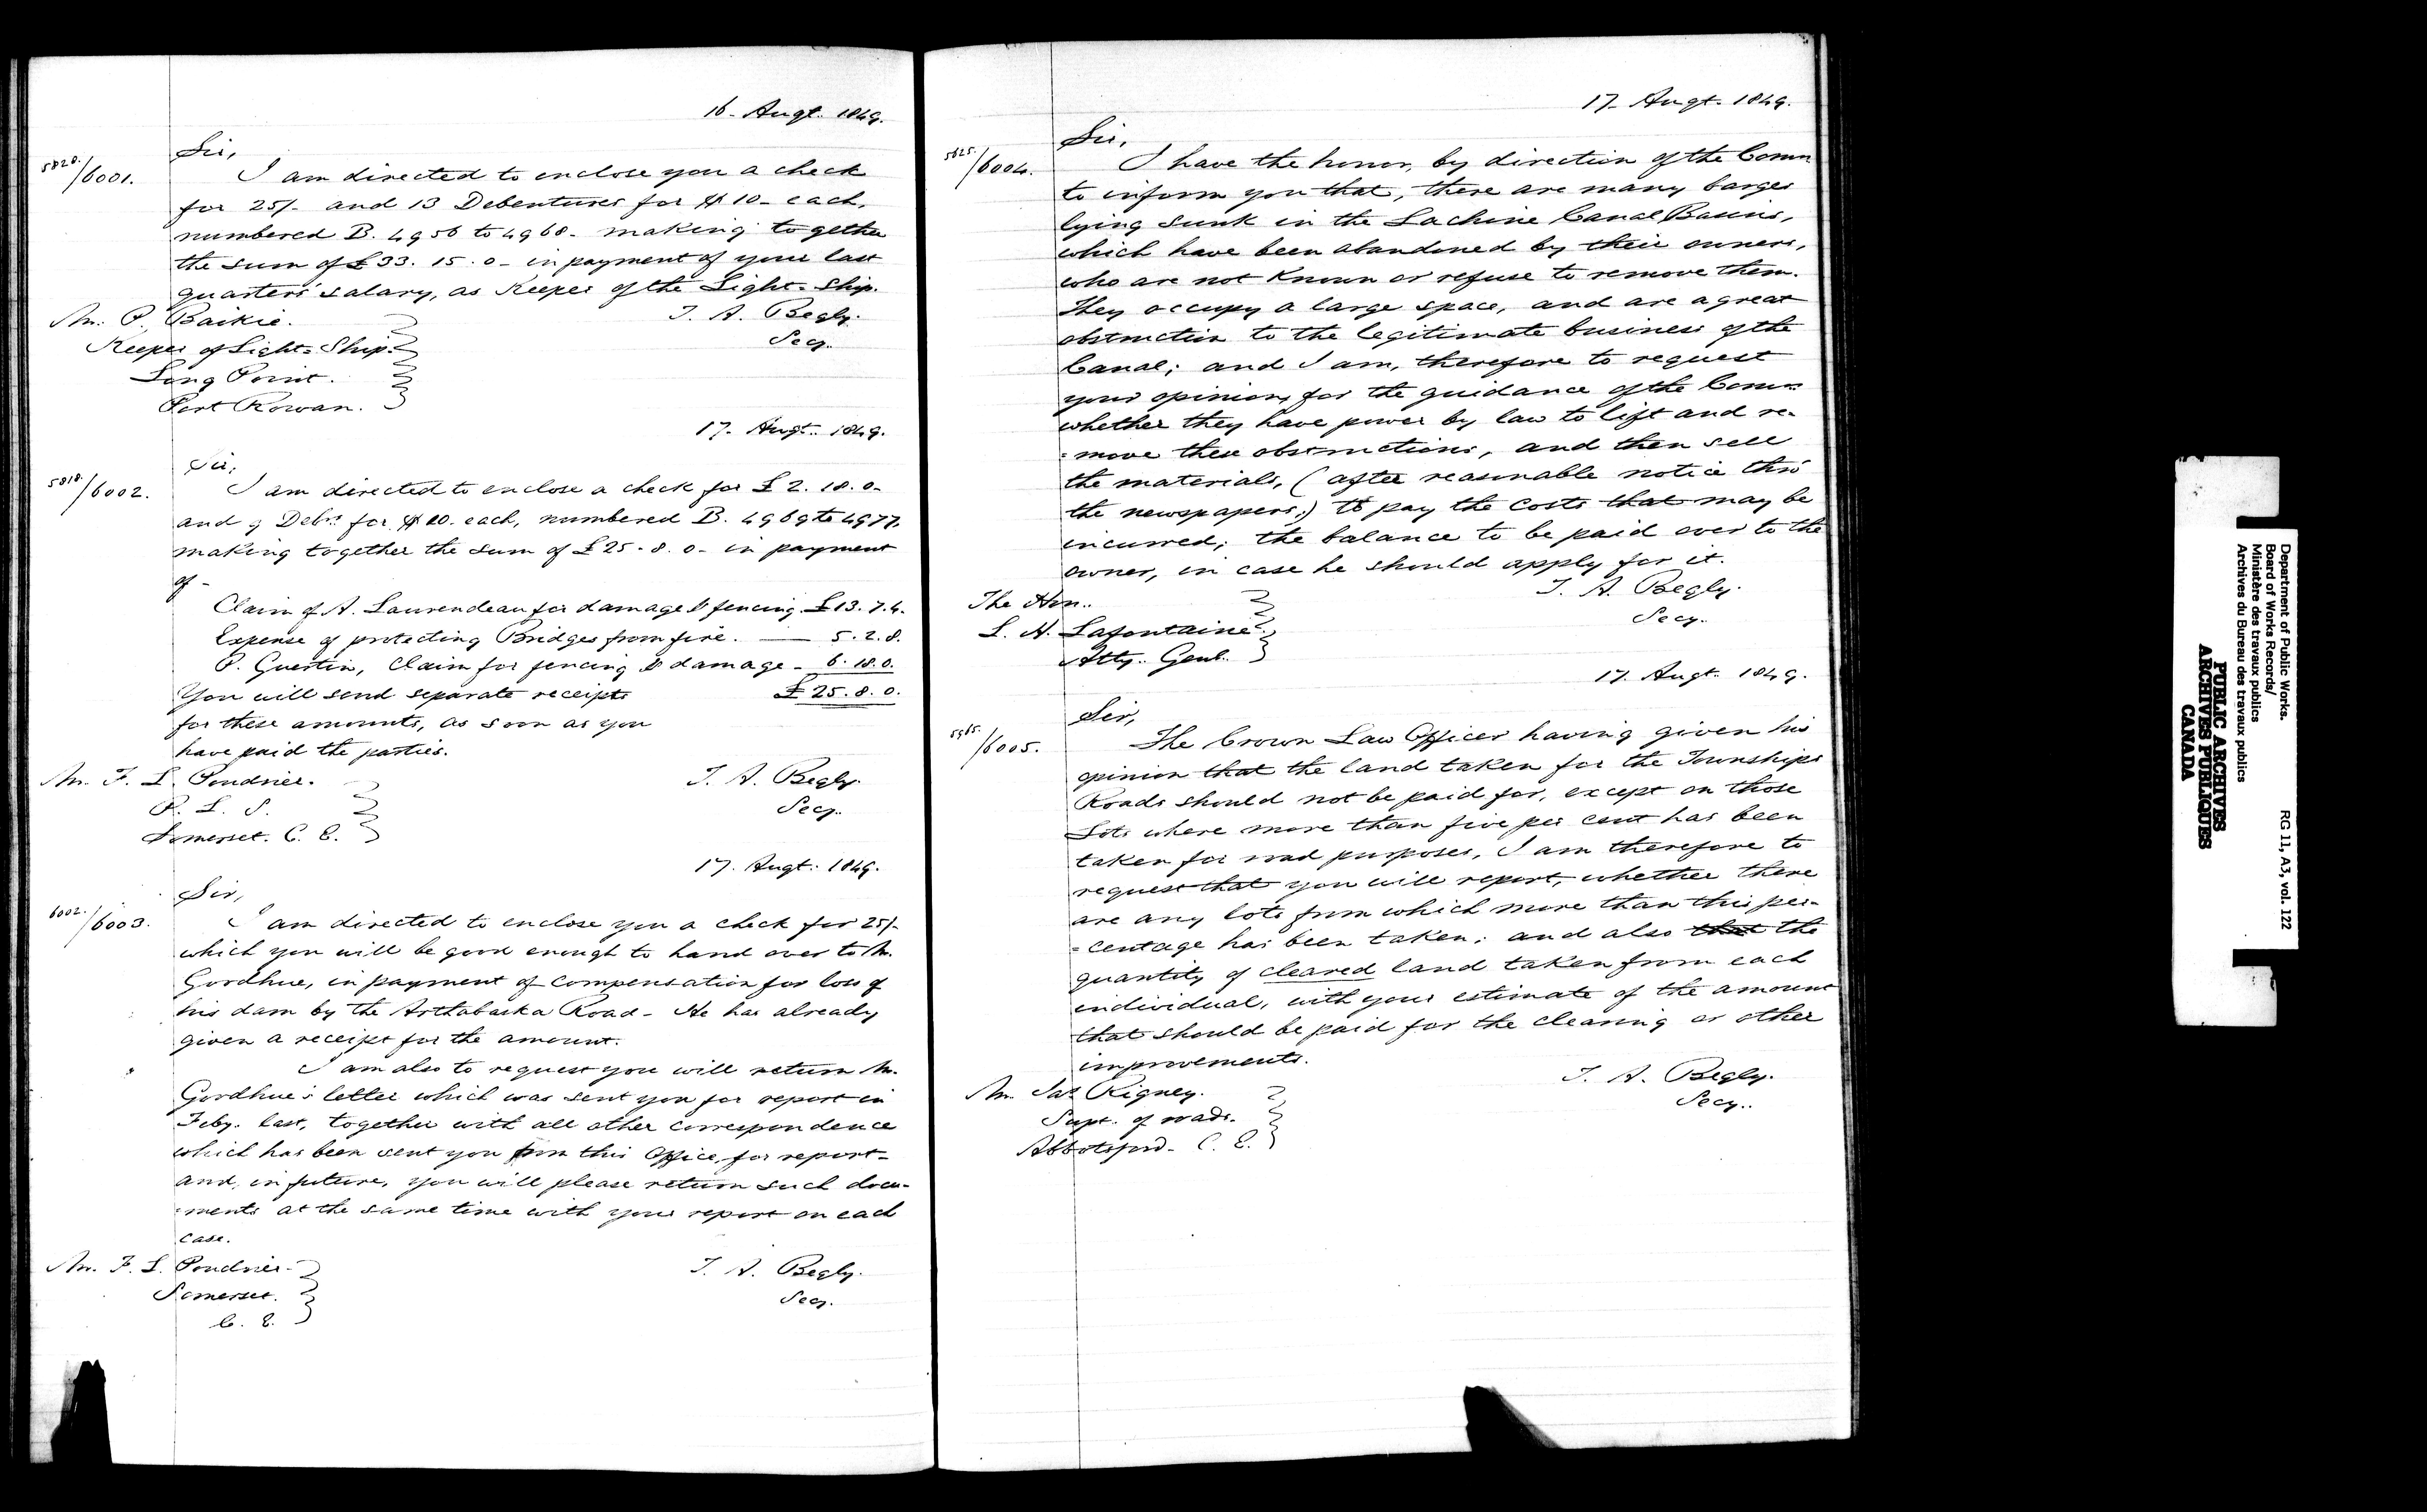 16- Augt. 1849.
Sir,
5820./6001.
I am directed to enclose you a check
for 25/- and 13 Debentures for $10- each,
numbered B. 4956 to 4968- making together
the sum of £33. 15. 0- in payment of your last
quarters' salary, as Keeper of the Light-Ship.
Mr. P. Baikie.
T. A. Begly.
Keeper of Light-Ship.
Secy.
Long Point.
Port Rowan.
17- Augt. 1849.
Sir,
5818./6002.
I am directed to enclose a check for £2. 18. 0-
and 9 Debrs. for $10. each, numbered B. 4969 to 4977.
making together the sum of £25. 8. 0- in payment
of -
Claim of A. Laurendeau for damage & fencing. £13. 7. 4.
Expense of protecting Bridges from fire. — 5. 2. 8.
P. Guertin, Claim for fencing & damage - 6. 18. 0.
You will send separate receipts £25. 8. 0.
for these amounts, as soon as you
have paid the parties.
Mr. F. L. Poudrier.
T. A. Begly.
P. L. S.
Secy.
Somerset. C. E.
17. Augt. 1849.
Sir,
6002./6003.
I am directed to enclose you a check for 25/-
which you will be good enough to hand over to Mr.
Goodhue, in payment of compensation for loss of
his dam by the Arthabaska Road- He has already
given a receipt for the amount.
I am also to request you will return Mr.
Goodhue's letter which was sent you for report in
Feby. last, together with all other correspondence
which has been sent you from this Office, for report-
and, in future, you will please return such docu-
-ments at the same time with your report on each
case.
Mr. F. L. Poudrier-
T. A. Begly.
Somerset.
Secy.
C. E.
17- Augt. 1849.
Sir,
5625./6004.
I have the honor, by direction of the Comrs
to inform you that, there are many barges
lying sunk in the Lachine Canal Basins,
which have been abandoned by their owners,
who are not known or refuse to remove them.
They occupy a large space, and are a great
obstruction to the legitimate business of the
Canal; and I am, therefore to request
your opinion, for the guidance of the Comrs
whether they have power by law to lift and re-
-move these obstructions, and then sell
the materials, (after reasonable notice thro'
the newspapers,) to pay the costs that may be
incurred; the balance to be paid over to the
owner, in case he should apply for it.
T. A. Begly.
The Hon..
Secy.
L. H. Lafontaine
Atty. Genl.
17. Augt. 1849.
Sir,
/6005.
The Crown Law Officer having given his
opinion that the land taken for the Townships
Roads should not be paid for, except on those
Lots where more than five per cent has been
taken for road purposes, I am therefore to
request that you will report, whether there
are any lots from which more than this per-
-centage has been taken; and also that the
quantity of cleared land taken from each
individual, with your estimate of the amount
that should be paid for the clearing or other
improvements.
T. A. Begly.
Mr. Jas. Rigney.
Secy..
Supt. of roads.
Abbotsford- C. E.
Department of Public Works. RG 11, A3, vol. 122
Board of Works Records/
Ministère des travaux publics
Archives du Bureau des travaux publics
PUBLIC ARCHIVES
ARCHIVES PUBLIQUES
CANADA